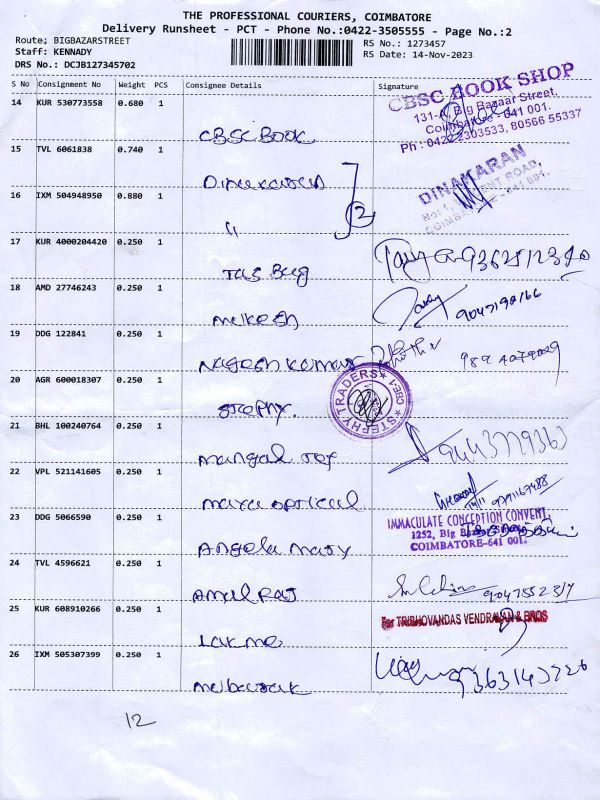 THE PROFESSIONAL COURIERS, COIMBATORE
Delivery Runsheet - PCT - Phone No.:0422-3505555 - Page No.:2
Route; BIGBAZARSTREET
Staff: KENNADY
DRS No.: DCJB127345702
RS No.: 1273457
RS Date: 14-Nov-2023
S No Consignment No Weight PCS Consignee Details Signature
14 KUR 530773558 0.680 1
CBSC BOOK
CBSC BOOK SHOP
131-A, Big Bazaar Street,
Coimbatore - 641 001.
Ph : 0422-2303533, 80566 55337
15 TVL 6061838 0.740 1
DINAMARAN
16 IXM 504948950 0.880 1
"
2
17 KUR 4000204420 0.250 1
Tas Bug
18 AMD 27746243 0.250 1
mukesh
19 DDG 122841 0.250 1
Nagesh kumar
20 AGR 600018307 0.250 1
Stephy.
STEPHY TRADERS CBE-1
21 BHL 100240764 0.250 1
mangal
22 VPL 521141605 0.250 1
23 DDG 5066590 0.250 1
Angela mary
IMMACULATE CONCEPTION CONVENT,
1252, Big
COIMBATORE-641 001.
24 TVL 4596621 0.250 1
Amul Raj
25 KUR 608910266 0.250 1
Lakme
For TRIBHOVANDAS VENDRAVAN & BROS
26 IXM 505307399 0.250 1
mubarak
12